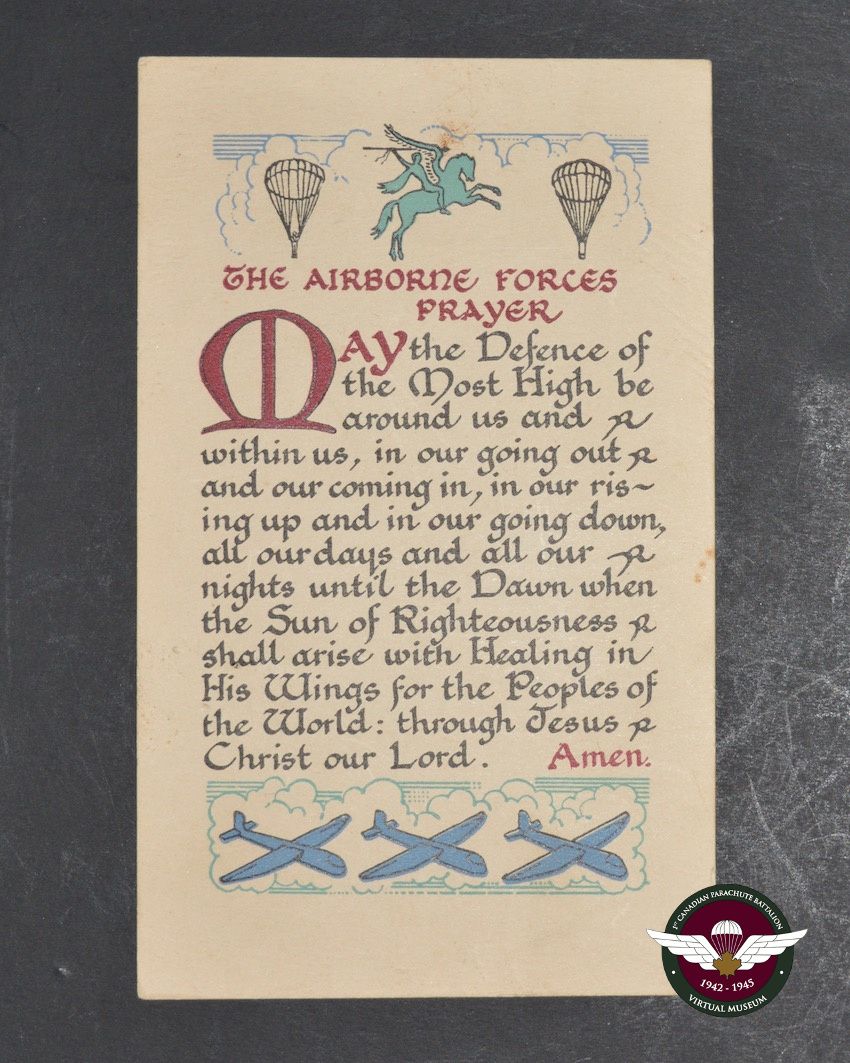 THE AIRBORNE FORCES
PRAYER
MAY the Defence of
the Most High be
around us and
within us, in our going out
and our coming in, in our ris~
ing up and in our going down,
all our days and all our
nights until the Dawn when
the Sun of Righteousness
shall arise with Healing in
His Wings for the Peoples of
the World: through Jesus
Christ our Lord. Amen.
1st CANADIAN PARACHUTE BATTALION
1942 - 1945
• VIRTUAL MUSEUM •